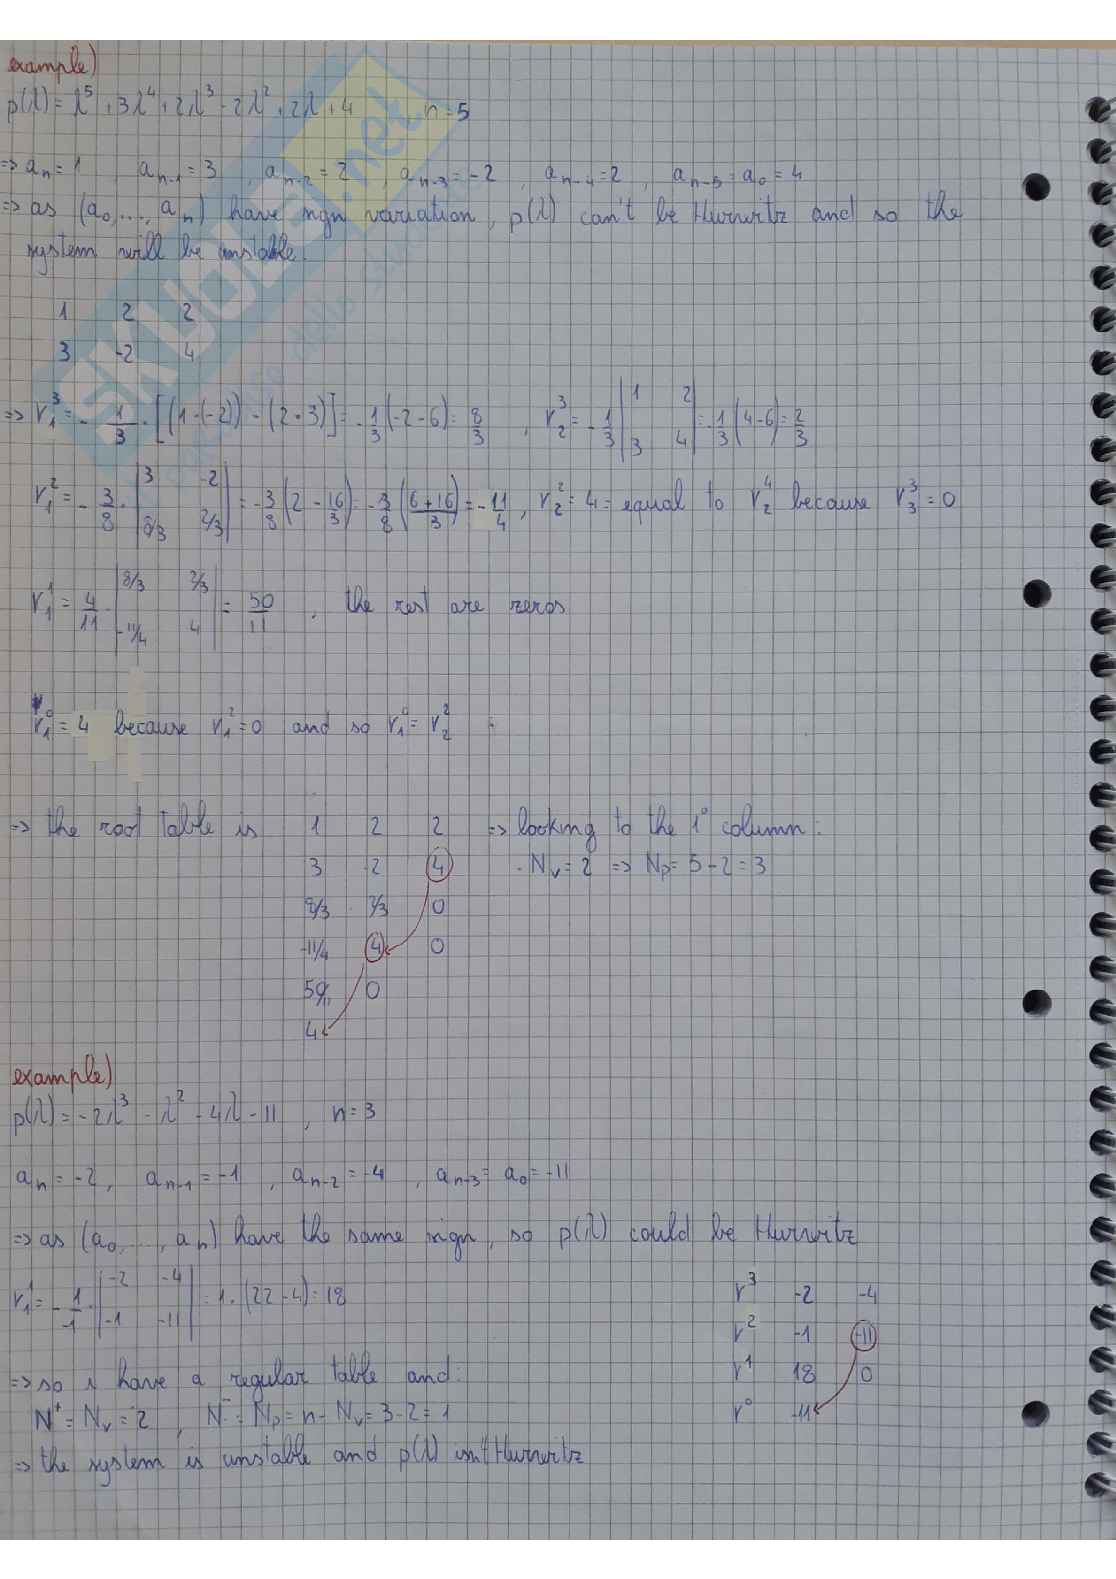 example)
p(λ) = λ⁵ + 3λ⁴ + 2λ³ - 2λ² + 2λ + 4    n = 5
=> aₙ = 1 , aₙ₋₁ = 3 , aₙ₋₂ = 2 , aₙ₋₃ = -2 , aₙ₋₄ = 2 , aₙ₋₅ = a₀ = 4
=> as (a₀, ..., aₙ) have sign variation, p(λ) can't be Hurwitz and so the
system will be unstable.
1 2 2
3 -2 4
=> r₁³ = - 1/3 · [(1·(-2)) - (2·3)] = - 1/3 (-2-6) = 8/3 , r₂³ = - 1/3 |1 2; 3 4| = - 1/3 (4-6) = 2/3
r₁² = - 3/8 · |3 -2; 8/3 2/3| = - 3/8 (2 - 16/3) = - 3/8 (6+16/3) = - 11/4 , r₂² = 4 = equal to r₂⁴ because r₃³ = 0
r₁¹ = 4/11 · |8/3 2/3; -11/4 4| = 50/11 , the rest are zeros
r₁⁰ = 4 because r₁² = 0 and so r₁⁰ = r₂²
=> the root table is 1 2 2 => looking to the 1° column:
3 -2 4 · Nᵥ = 2 => Nₚ = 5 - 2 = 3
8/3 2/3 0
-11/4 4 0
50/11 0
4
example)
p(λ) = -2λ³ - λ² - 4λ - 11 , n = 3
aₙ = -2 , aₙ₋₁ = -1 , aₙ₋₂ = -4 , aₙ₋₃ = a₀ = -11
=> as (a₀, ..., aₙ) have the same sign, so p(λ) could be Hurwitz
r₁¹ = - 1/-1 · |-2 -4; -1 -11| = 1 · (22-4) = 18
r³ -2 -4
r² -1 -11
r¹ 18 0
r⁰ -11
=> so i have a regular table and:
N⁺ = Nᵥ = 2 , N⁻ = Nₚ = n - Nᵥ = 3 - 2 = 1
=> the system is unstable and p(λ) isn't Hurwitz
SKUOLA.net